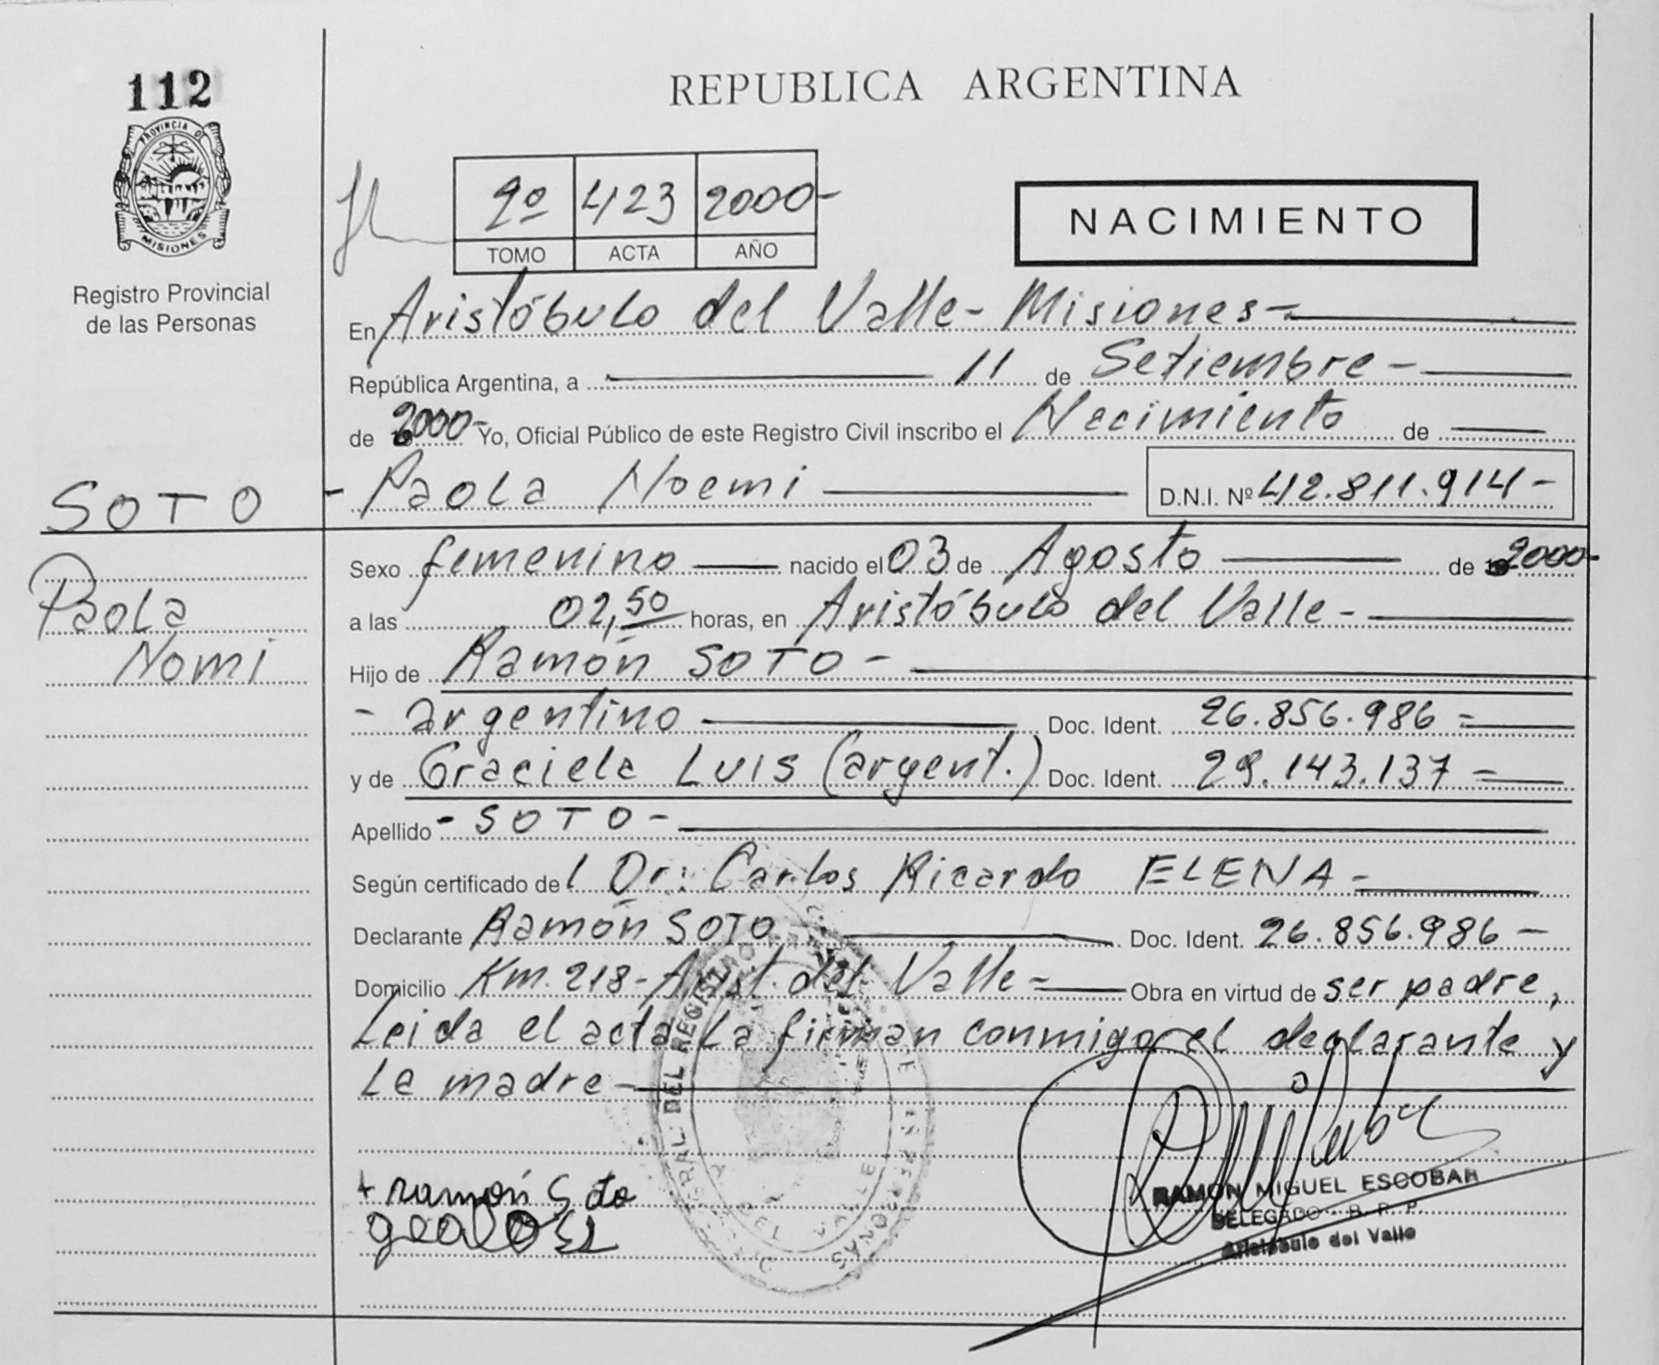 112
PROVINCIA DE
MISIONES
Registro Provincial
de las Personas
REPUBLICA ARGENTINA
2º 423 2000-
TOMO ACTA AÑO
NACIMIENTO
En Aristóbulo del Valle- Misiones-
República Argentina, a 11 de Setiembre-
de 2000- Yo, Oficial Público de este Registro Civil inscribo el Necimiento de
SOTO
- Paola Noemi D.N.I. Nº 42.811.914-
Paola
Nomi
Sexo femenino nacido el 03 de Agosto de 2000-
a las 02,50 horas, en Aristóbulo del Valle-
Hijo de Ramón SOTO-
- argentino Doc. Ident. 26.856.986=
y de Graciela LUIS (argent.) Doc. Ident. 29.143.137=
Apellido - SOTO-
Según certificado del Dr: Carlos Ricardo ELENA-
Declarante Ramón SOTO Doc. Ident. 26.856.986-
Domicilio Km. 218- Arist. del Valle- Obra en virtud de ser padre,
Leida el acta la firman conmigo el declarante y
La madre-
+ ramón Soto
RAMON MIGUEL ESCOBAR
DELEGADO R. P. P.
Aristóbulo del Valle
DEL REGISTRO
PERSONAS